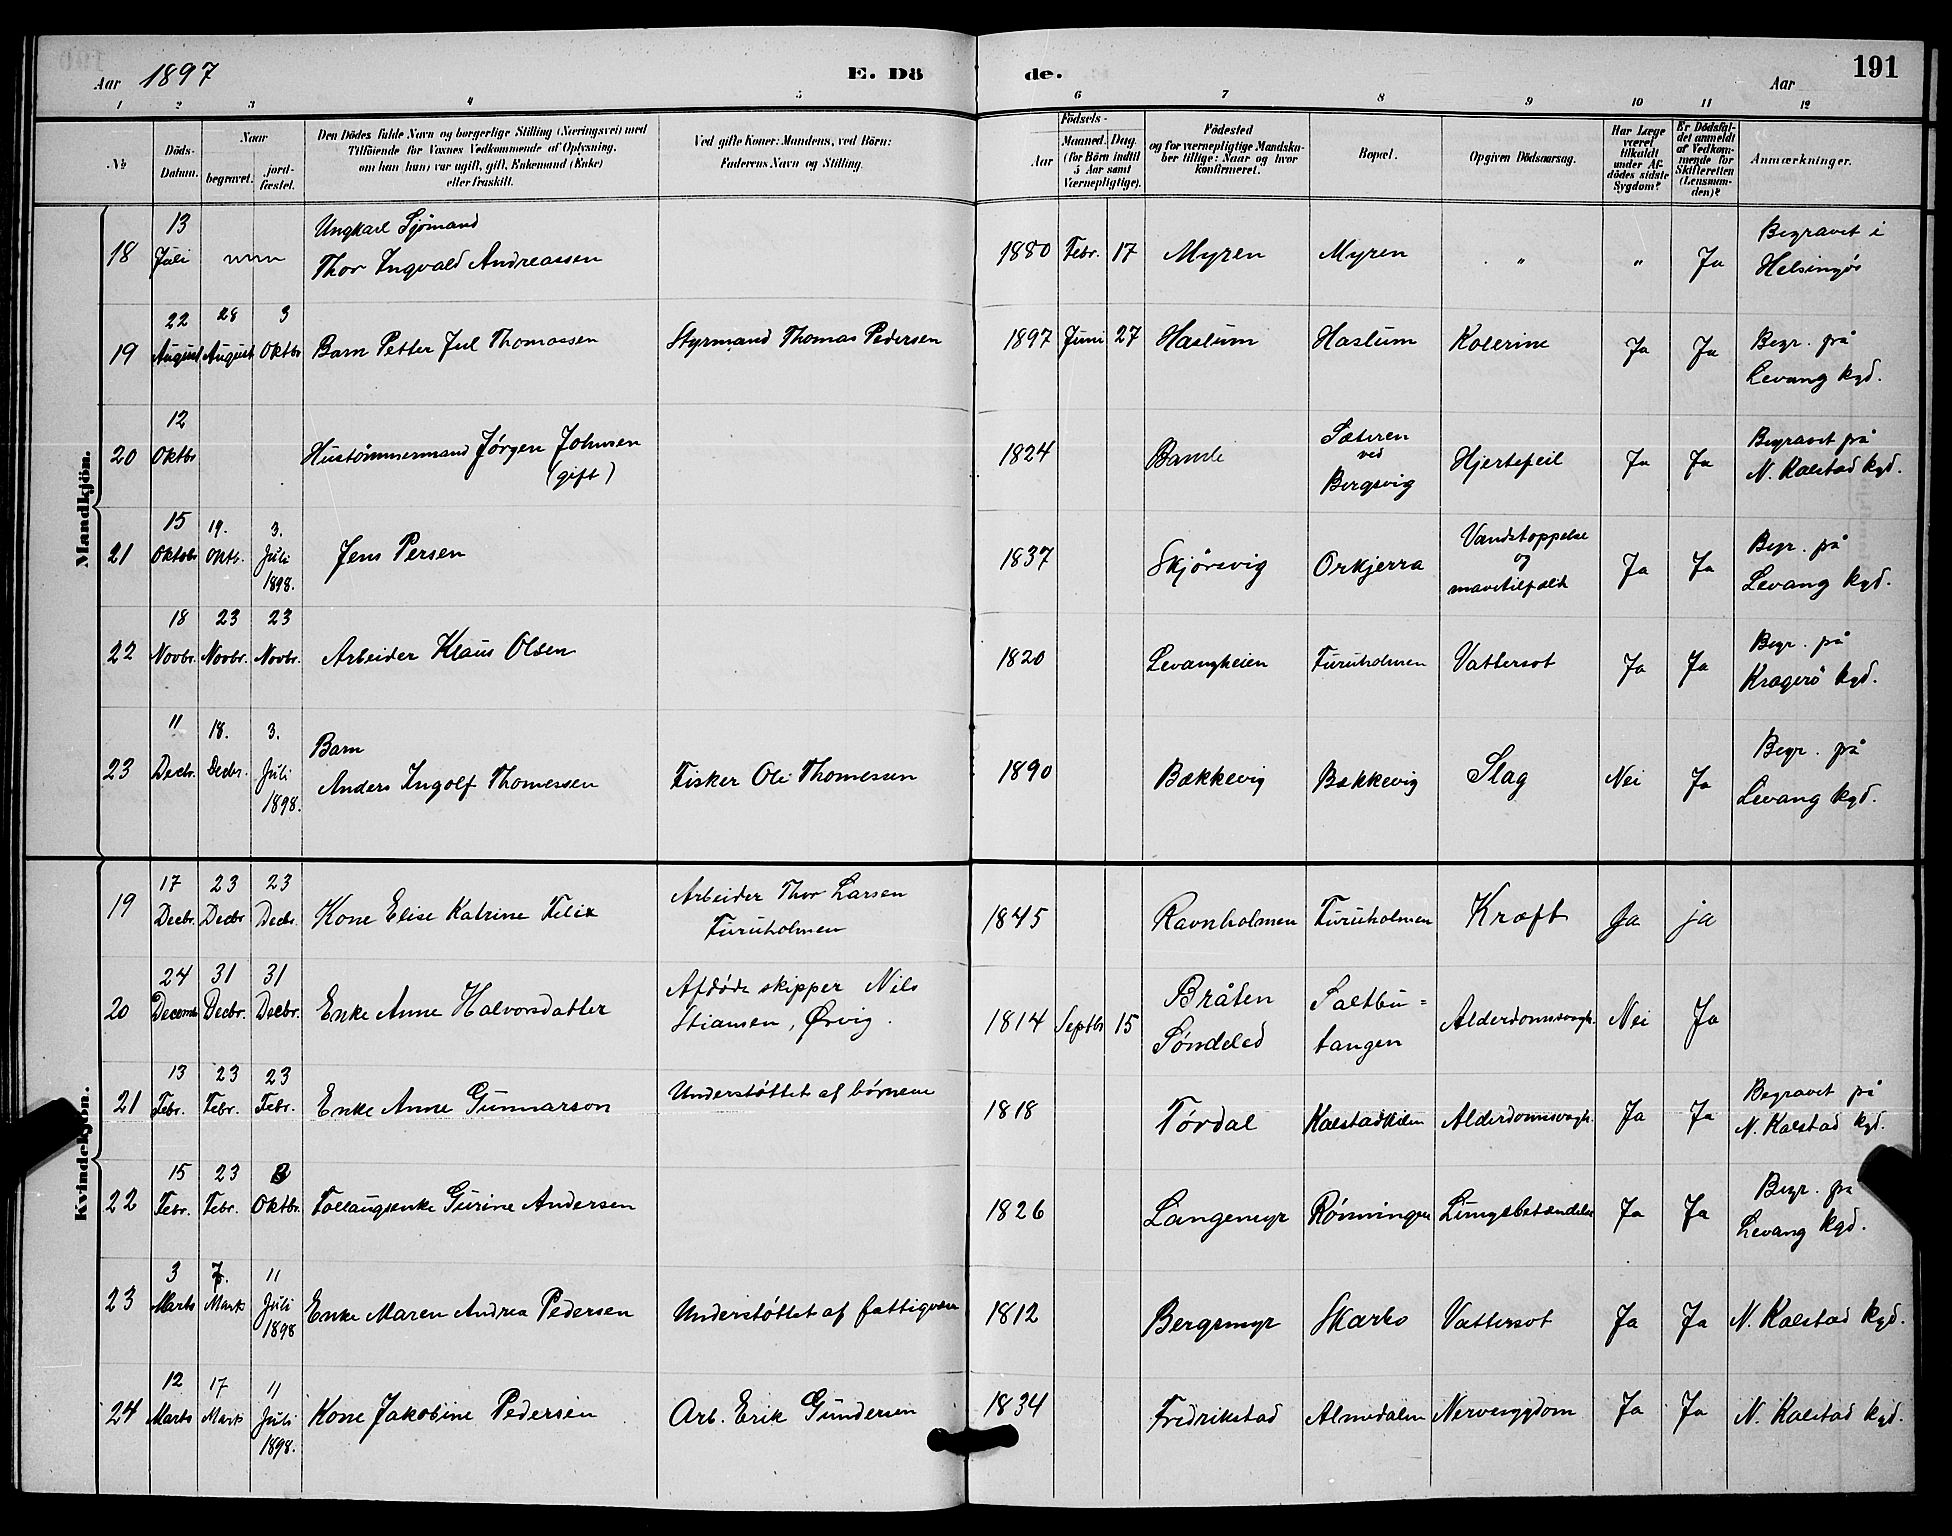 Aar 1897 E. Dö de. Aar 191
1 2 3 4 5 6 7 8 9 10 11 12
No. Döds-Datum. Naar begravet. jord-fæstet. Den Dödes fulde Navn og borgerlige Stilling (Næringsvei) med Tilföiende for Voxnes Vedkommende af Oplysning, om han (hun) var ugift, gift, Enkemand (Enke) eller fraskilt. Ved gifte Koner: Mandens, ved Börn: Faderens Navn og Stilling. Födsels- Aar Maaned. Dag. (for Börn indtil 5 Aar samt Værnepligtige). Födested og for værnepligtige Mandskaber tillige: Naar og hvor konfirmeret. Bopæl. Opgiven Dödsaarsag. Har Læge været tilkaldt under Afdödes sidste Sygdom? Er Dödsfaldet anmeldt af Vedkommende for Skifteretten (Lensmanden)? Anmærkninger.
Mandkjön.
18 13 Juli Ungkarl Sjömand Thor Ingvald Andreassen 1880 Febr. 17 Myren Myren " " Ja Begravet i Helsingör
19 22 August 28 August 3 Oktbr Barn Petter Jul Thomassen Styrmand Thomas Pedersen 1897 Juni 27 Haslum Haslum Kolerine Ja Ja Begr. på Levang kgd.
20 12 Oktbr Hustömmermand Jörgen Johnsen (gift) 1824 Bamle Sæteren ved Bergsvig Hjertefeil Ja Ja Begravet på N. Kalstad kgd.
21 15 Oktobr 19. Oktb. 3. Juli 1898. Jens Persen 1837 Skjörsvig Orkjerra Vandstoppelse og mavetilfælde Ja Ja Begr. på Levang kgd.
22 18 Novbr. 23 Novbr. 23 Novbr. Arbeider Klaus Olsen 1820 Levangheien Furuholmen Vattersot Ja Ja Begr. på Kragerö kgd.
23 11 Decbr. 18. Decbr. 3. Juli 1898. Barn Anders Ingolf Thomessen Fisker Ole Thomesen 1890 Bækkevig Bækkevig Slag Nei Ja Begr. på Levang kgd.
Kvindekjön.
19 17 Decbr. 23 Decbr 23 Decbr. Kone Elise Katrine Felix Arbeider Thor Larsen Furuholmen 1845 Ravnholmen Furuholmen Kræft Ja ja
20 24 Decemb 31 Decbr. 31 Decbr. Enke Anne Halvorsdatter Afdöde skipper Nils Stiansen, Ørvig. 1814 Septbr 15 Bråten Söndeled Saltbu= tangen Alderdomssvagh. Nei Ja
21 13 Febr. 23 Febr. 23 Febr. Enke Anne Gunnarson Understöttet af börnene 1818 Tördal Kalstadkilen Alderdomssvagh. Ja Ja Begravet på N. Kalstad kgd.
22 15 Febr. 23 Febr. Oktbr. Follaugsenke Gurine Andersen 1826 Langemyr Rönningen Lungebetændelse Ja Ja Begr. på Levang kgd.
23 3 Marts 7. Marts 11 Juli 1898 Enke Maren Andrea Pedersen Understöttet af fattigvæs 1812 Bergsmyr Skarbo Vattersot Ja Ja N. Kalstad kgd.
24 12 Marts 17 Marts 11 Juli 1898. Kone Jakobine Pedersen Arb. Erik Gundersen 1834 Fredrikstad Almedalen Nervesygdom Ja Ja N. Kalstad kgd.